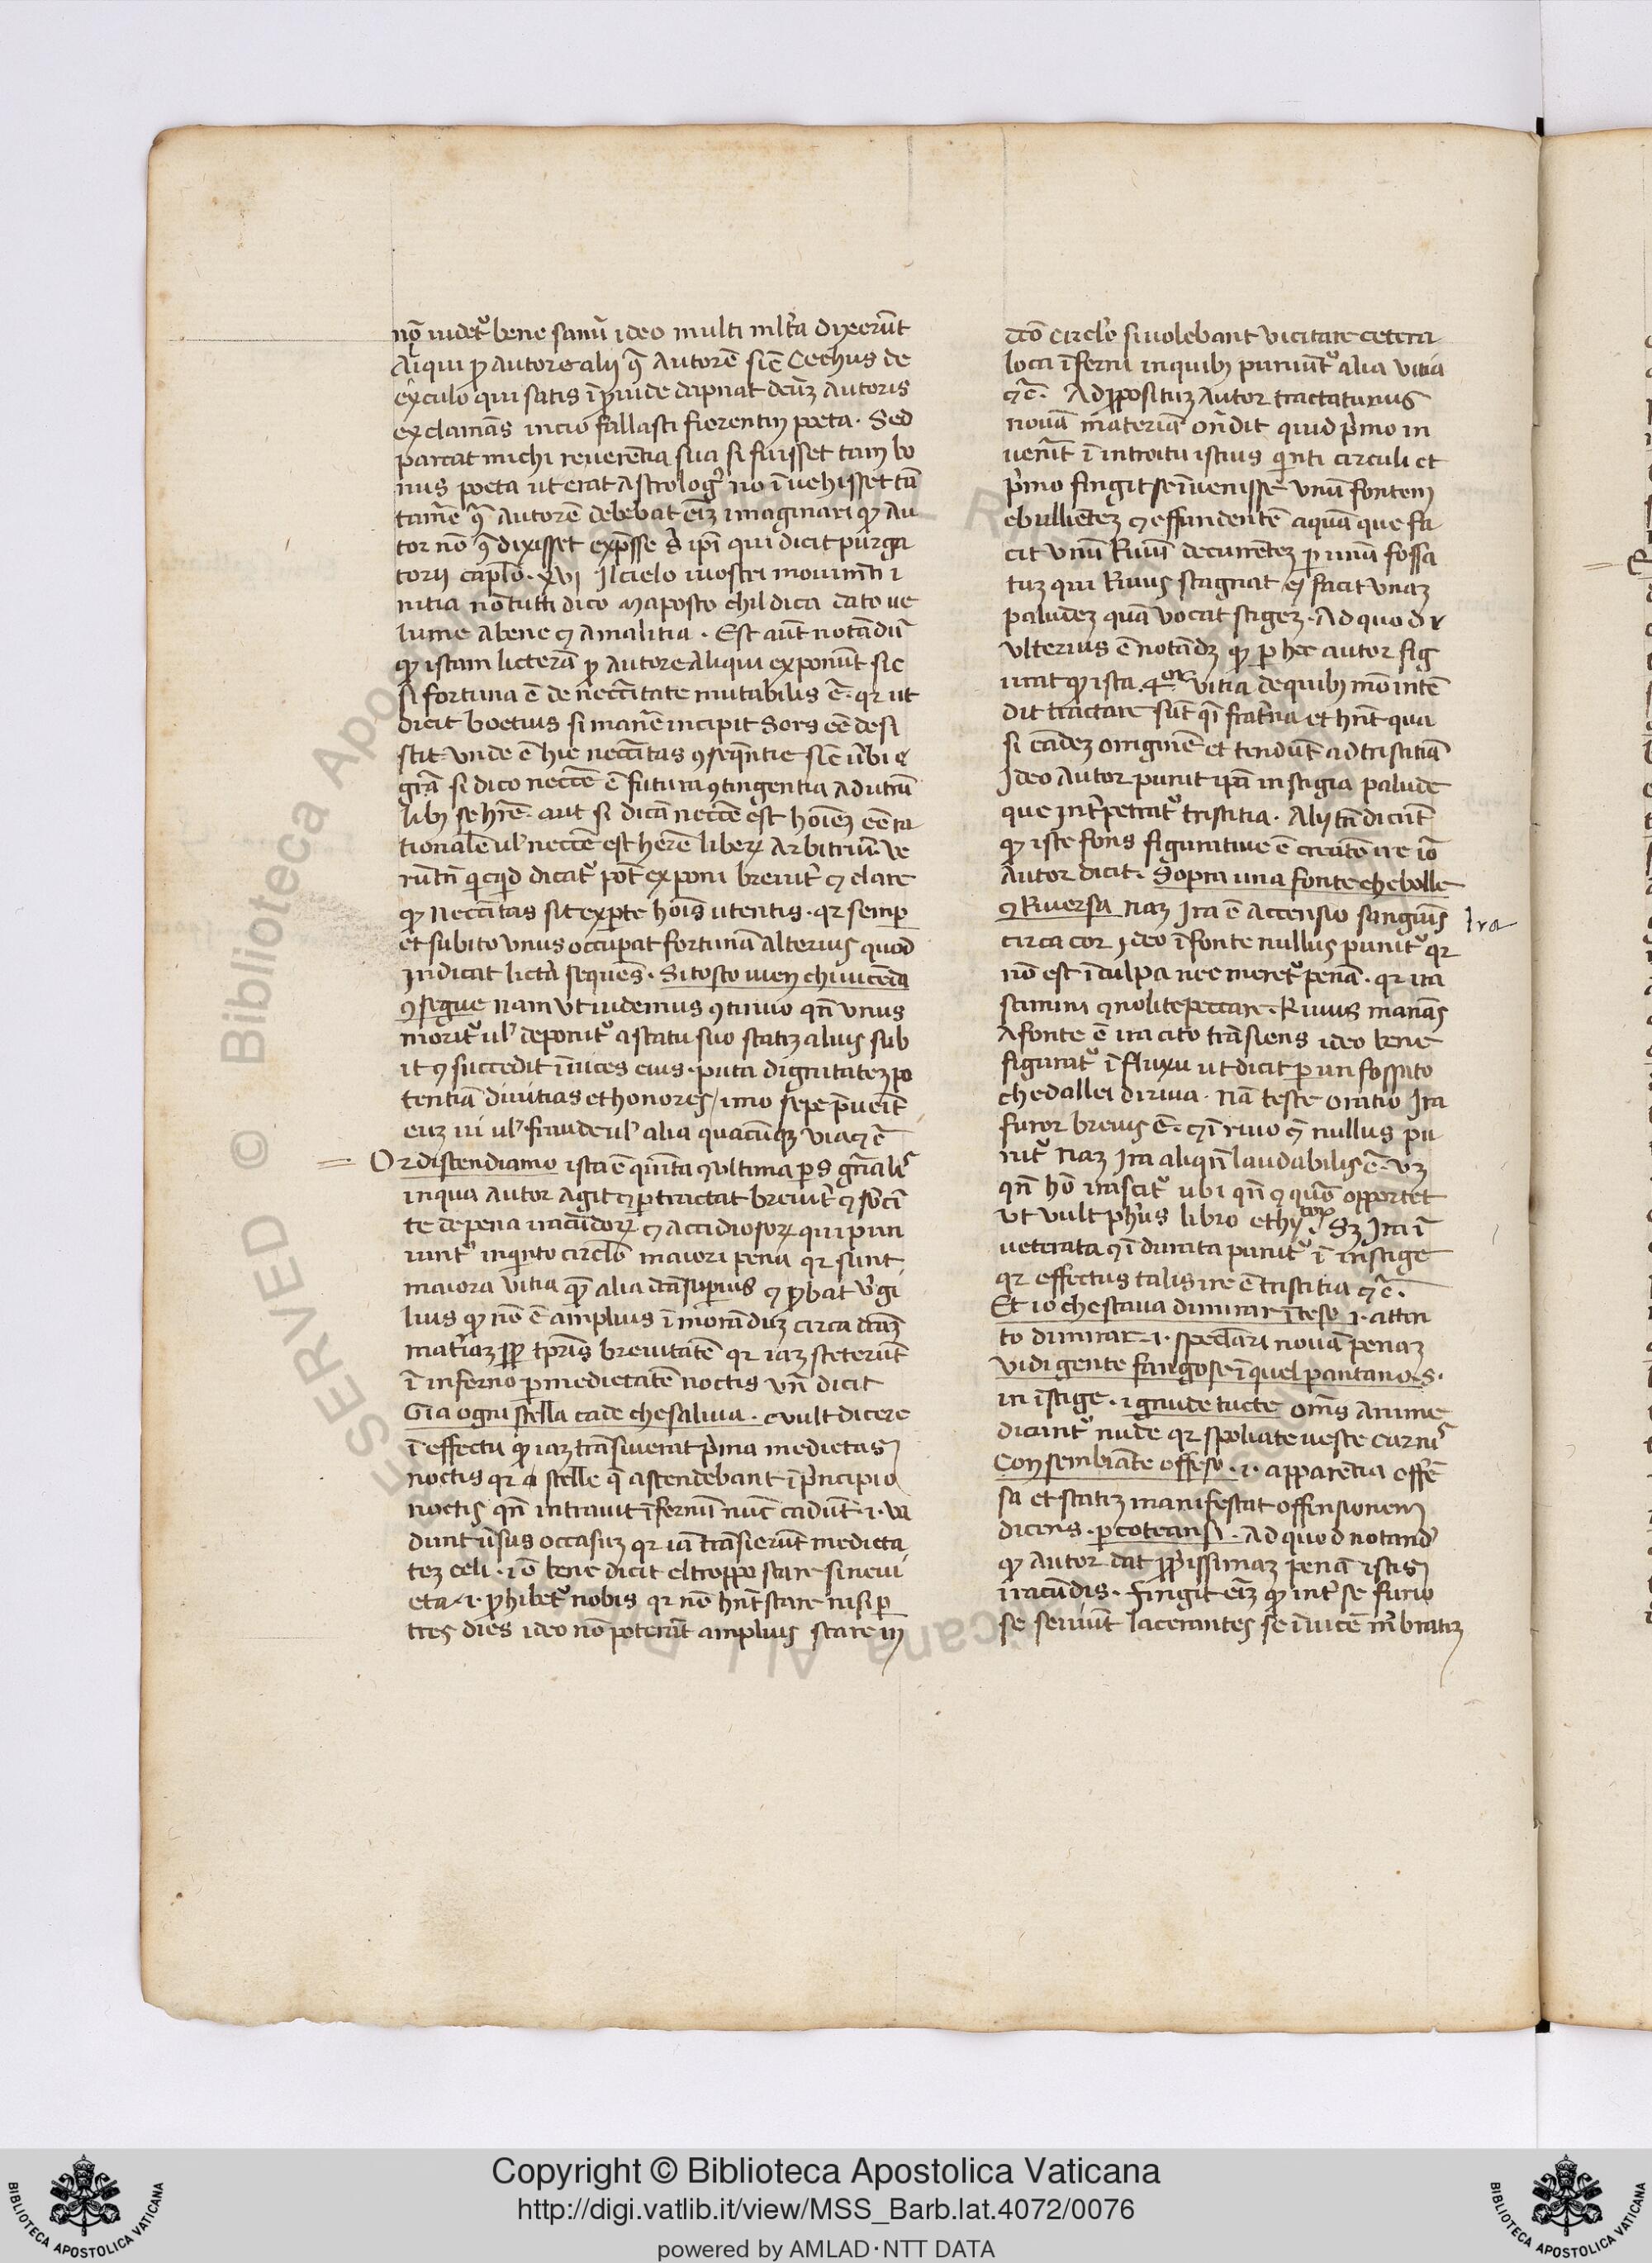 nō uidet᷑ bene sanū ideo multi mlt̄a dixerūt
Aliqui ꝓ autore alij ꝯ̄ Autorē sič Cechus de
eſculo qui satis īprouide dapnat deūz autoris
exclamās incio fallasti fiorentin poeta. Sed
parcat michi reuerētia sua si fuisset tam bo
nus poeta ut erat Astrolog᷒ nō īuehisset tā
tamē ꝯ̄ Autorē debebat eīz imaginari qꝫ Au
tor nō ꝯ̄dixisset exp̄sse s̄ ip̄i qui dicit purga
torij capl̄o. xvj Il cielo i uostri mouimēti i
nitia nō tutti dico Ma posto chil dica dato ue
lume a bene ⁊ a malitia. Est aūt notādū
qꝫ istam licterā ꝓ autore aliqui exponūt sic
si fortuna ē de neccītate mutabilis ē. qr ut
dicit boetius si manē incipit Sors eē desi
stit. unde ē hic neccītas ꝯseqn̄tie sič ūbi
grā si dico neccē ē futura ꝯtingentia ad utrū
libꝫ se hr̄e. aut si dicā neccē est hoīez eē ra
tionalē ul᷑ neccē est hērē liberꝫ Arbitriū. Ve
rūtn̄ qicqid dicat᷑ pōt exponi breuit᷑ ⁊ clare
qꝫ Neccītas sit ex parte hoīs utentis. qr semper
et subito unus occupat fortunā alterius quod
Indicat lictā sequēs. Si tosto uien chi uicēda
ꝯsegue nam vt uidemus ꝯtinuo qn̄ unus
morit᷑ ul᷑ deponit᷑ a statu suo statiz alius sub
it ⁊ succedit īuices eius. puta dignitatez po
tentiā diuitias et honores / imo sepe p̄uēit
euz ui ul᷑ fraude ul᷑ alia quacūqꝫ uia ⁊č̄
Or distendiamo ista ē quīta ⁊ ultima pars gn̄alis
in qua Autor Agit ⁊ pertractat breuit᷑ ⁊ sūcī
te de pena iracūdoꝝ ⁊ accidiosoꝝ qui pun
iunt᷑ in qinto circl̄o maiori pena qr sunt
maiora vitia qꝫ alia dc̄a superius ⁊ ꝓbat v᷑gi
lius qꝫ nō ē amplius īmorāduz circa dcāz
mat᷑iaz ꝓpt tp̄ris breuitatē qr iaz steterūt
ī inferno per medietatē noctis vn̄ dicit
Gia ogni stella cade che saliua. ⁊ vult dicere
ī effectu qꝫ iaz trāsiuerat p᷑ma medietas
noctis qr stelle q̄ astendebant ī p᷑ncipio
noctis qn̄ intrauit īfernū nūc cadūt .i. va
dunt ūsus occasuz qr iā trāsierūt medieta
tez celi. iō bene dicit el troppo stare si ne ui
eta .i. ꝓhibet᷑ nobis qr nō hn̄t stare nisi per
tres dies ideo nō poterāt amplius stare in
dc̄o circl̄o si uolebant uicitare cetera
loca īferni in quibꝫ puniūt᷑ alia vitia
⁊č̄. Ad ꝓpositūz Autor tractaturus
nouā materiā on̄dit quid p᷑mo in
uenīt ī introitu istius qinti circuli et
p᷑mo fingit se īuenisse unū fontem
ebullientez ⁊ effundentē aquā que fa
cit unū Riuū decurrētez per unū fossa
tuz qui Riuus stagnat ⁊ facit unaz
paludez quā vocat stigez. Ad quod
ulterius ē notādꝫ qꝫ per hec autor fig
urat qꝫ ista 4ᵒʳ vitia de quibꝫ mō intē
dit tractare sūt q̄i fratn̄a et hn̄t qua
si eādez originē et tendūt ad tristitiā
Ideo Autor punit ip̄a in stigia palude
que int᷑petrat᷑ tristitia. Alij tn̄ dicūt
qꝫ iste fons figuratiue ē ire iō
Autor dicit. Sopra una fonte che bolle
⁊ Riuersa Naz Ira ē Accensio sanguīs
circa cor ideo ī fonte nullus punit᷑ qr
nō est ī culpa nec meret᷑ penā. qr ira
scimini ⁊ nolite peccare. Riuus manās
a fonte ē ira cito trāsiens ideo bene
figurat᷑ ī fluxu ut dicit per un fossato
che da llei diriua. Nā teste oratio Ira
furor breuis ē. ⁊ ī riuo ⁊ nullus pu
nit᷑ Naz Ira aliqn̄ laudabilis ē. vꝫ
qn̄ hō irascit᷑ ubi qn̄ ⁊ quō opportet
ut vult ph᷑us libro ethycoꝝ. Sꝫ Ira ī
ueterata ⁊ īdurata punit᷑ ī in stige
qr effectus talis ire ē tristitia ⁊č̄.
Et io che staua di mirar īteso .i. atten
to di mirar .i. speculari nouā penaz
Vidi gente fangose ī quel pantano .s.
in istige. ignude tucte om̄s Anime
dicūnt᷑ nude qr spoliate ueste carnis
Con sembiāte offeso .i. apparētia offē
sa et statiz manifestat offensionem
dicens. percoteansi. Ad quod notand
qꝫ autor dat ꝓp᷑issimaz penā istis
iracūdis. Fingit eīz qꝫ int᷑ se furio
se seruiūt lacerantes se īuicē mēbratiz
Ira
Copyright © Biblioteca Apostolica Vaticana
http://digi.vatlib.it/view/MSS_Barb.lat.4072/0076
powered by AMLAD·NTT DATA
BIBLIOTECA APOSTOLICA VATICANA
BIBLIOTECA APOSTOLICA VATICANA